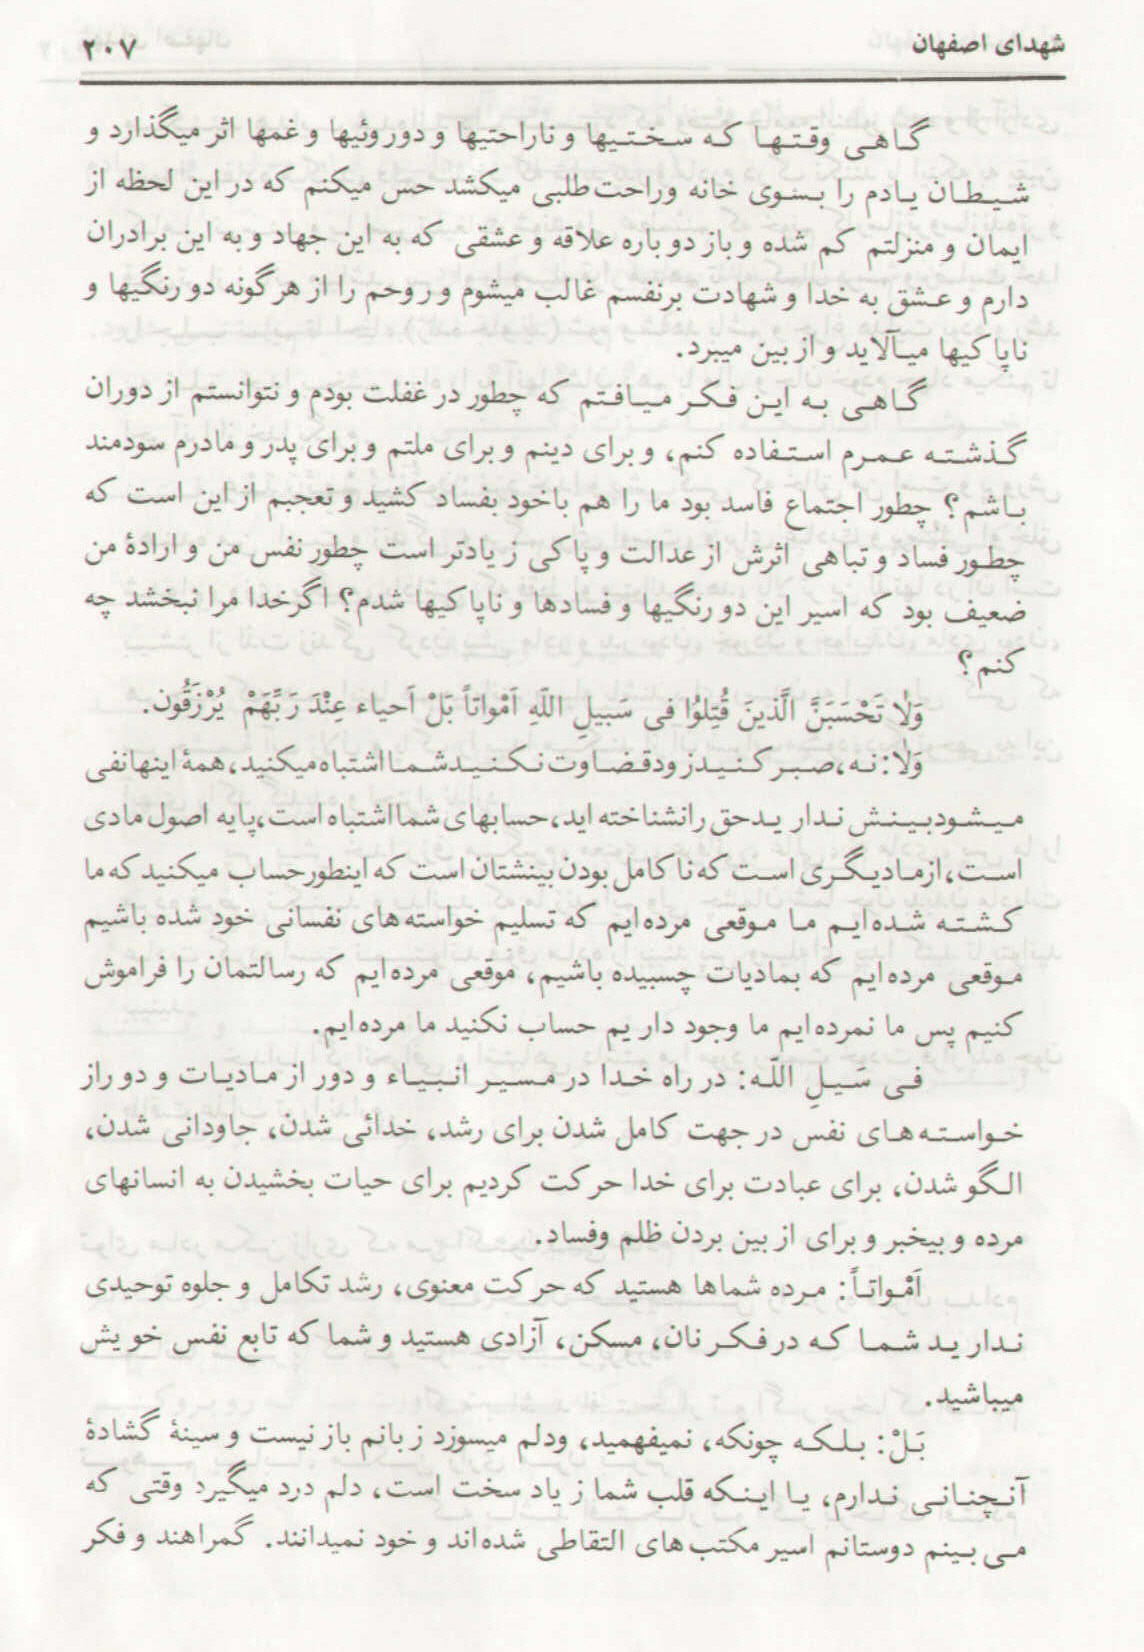 شهدای اصفهان ۲۰۷
گاهی وقتها که سختیها و ناراحتیها و دوروئیها و غمها اثر میگذارد و
شیطان یادم را بسوی خانه وراحت‌طلبی میکشد حس میکنم که در این لحظه از
ایمان و منزلتم کم شده و باز دوباره علاقه و عشقی که به این جهاد و به این برادران
دارم و عشق به خدا و شهادت برنفسم غالب میشوم و روحم را از هرگونه دورنگیها و
ناپاکیها میآلاید و از بین میبرد.
گاهی به این فکر میافتم که چطور در غفلت بودم و نتوانستم از دوران
گذشته عمرم استفاده کنم، و برای دینم و برای ملتم و برای پدر و مادرم سودمند
باشم؟ چطور اجتماع فاسد بود ما را هم باخود بفساد کشید و تعجبم از این است که
چطور فساد و تباهی اثرش از عدالت و پاکی زیادتر است چطور نفس من و ارادهٔ من
ضعیف بود که اسیر این دورنگیها و فسادها و ناپاکیها شدم؟ اگر خدا مرا نبخشد چه
کنم؟
وَلٰا تَحْسَبَنَّ الَّذینَ قُتِلوُا فی سَبیلِ اللَّهِ اَمْواتاً بَلْ اَحیاء عِنْدَ رَبِّهَمْ یُرْزَقُون.
وَلٰا: نه، صبر کنید زود قضاوت نکنید شما اشتباه میکنید، همهٔ اینها نفی
میشود بینش ندارید حق را نشناخته اید، حسابهای شما اشتباه است، پایه اصول مادی
است، از مادیگری است که ناکامل بودن بینشتان است که اینطور حساب میکنید که ما
کشته شده‌ایم ما موقعی مرده‌ایم که تسلیم خواسته‌های نفسانی خود شده باشیم
موقعی مرده‌ایم که بمادیات چسبیده باشیم، موقعی مرده‌ایم که رسالتمان را فراموش
کنیم پس ما نمرده‌ایم ما وجود داریم حساب نکنید ما مرده‌ایم.
فی سَیلِ اللّه: در راه خدا در مسیر انبیاء و دور از مادیات و دور از
خواسته‌های نفس در جهت کامل شدن برای رشد، خدائی شدن، جاودانی شدن،
الگو شدن، برای عبادت برای خدا حرکت کردیم برای حیات بخشیدن به انسانهای
مرده و بیخبر و برای از بین بردن ظلم وفساد.
اَمْواتاً: مرده شماها هستید که حرکت معنوی، رشد تکامل و جلوه توحیدی
ندارید شما که در فکر نان، مسکن، آزادی هستید و شما که تابع نفس خویش
میباشید.
بَلْ: بلکه چونکه، نمیفهمید، ودلم میسوزد زبانم باز نیست و سینهٔ گشادهٔ
آنچنانی ندارم، یا اینکه قلب شما زیاد سخت است، دلم درد میگیرد وقتی که
می‌بینم دوستانم اسیر مکتب‌های التقاطی شده‌اند و خود نمیدانند. گمراهند و فکر